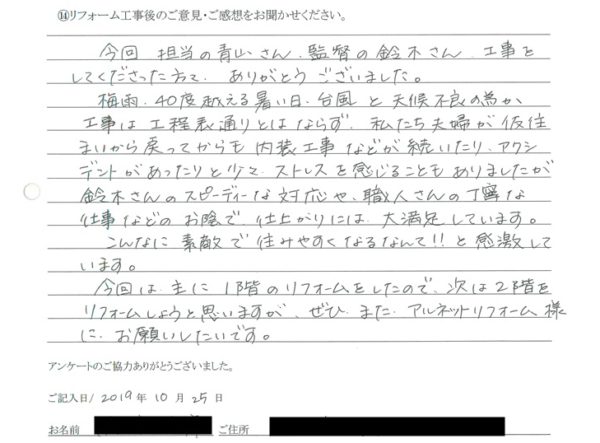 ⑭リフォーム工事後のご意見・ご感想をお聞かせください。
今回 担当の青山さん、監督の鈴木さん、工事を
してくださった方々、ありがとうございました。
梅雨、40度越える暑い日、台風と天候不良の為か
工事は工程表通りとはならず、私たち夫婦が仮住
まいから戻ってからも内装工事などが続いたり、アクシ
デントがあったりと少々ストレスを感じることもありましたが
鈴木さんのスピーディーな対応や、職人さんの丁寧な
仕事などのお陰で、仕上がりには、大満足しています。
こんなに素敵で住みやすくなるなんて!!と感激して
います。
今回は、主に1階のリフォームをしたので、次は2階を
リフォームしようと思いますが、ぜひ、また、アルネットリフォーム様
に、お願いしたいです。
アンケートのご協力ありがとうございました。
ご記入日/ 2019 年 10 月 25 日
お名前 ご住所